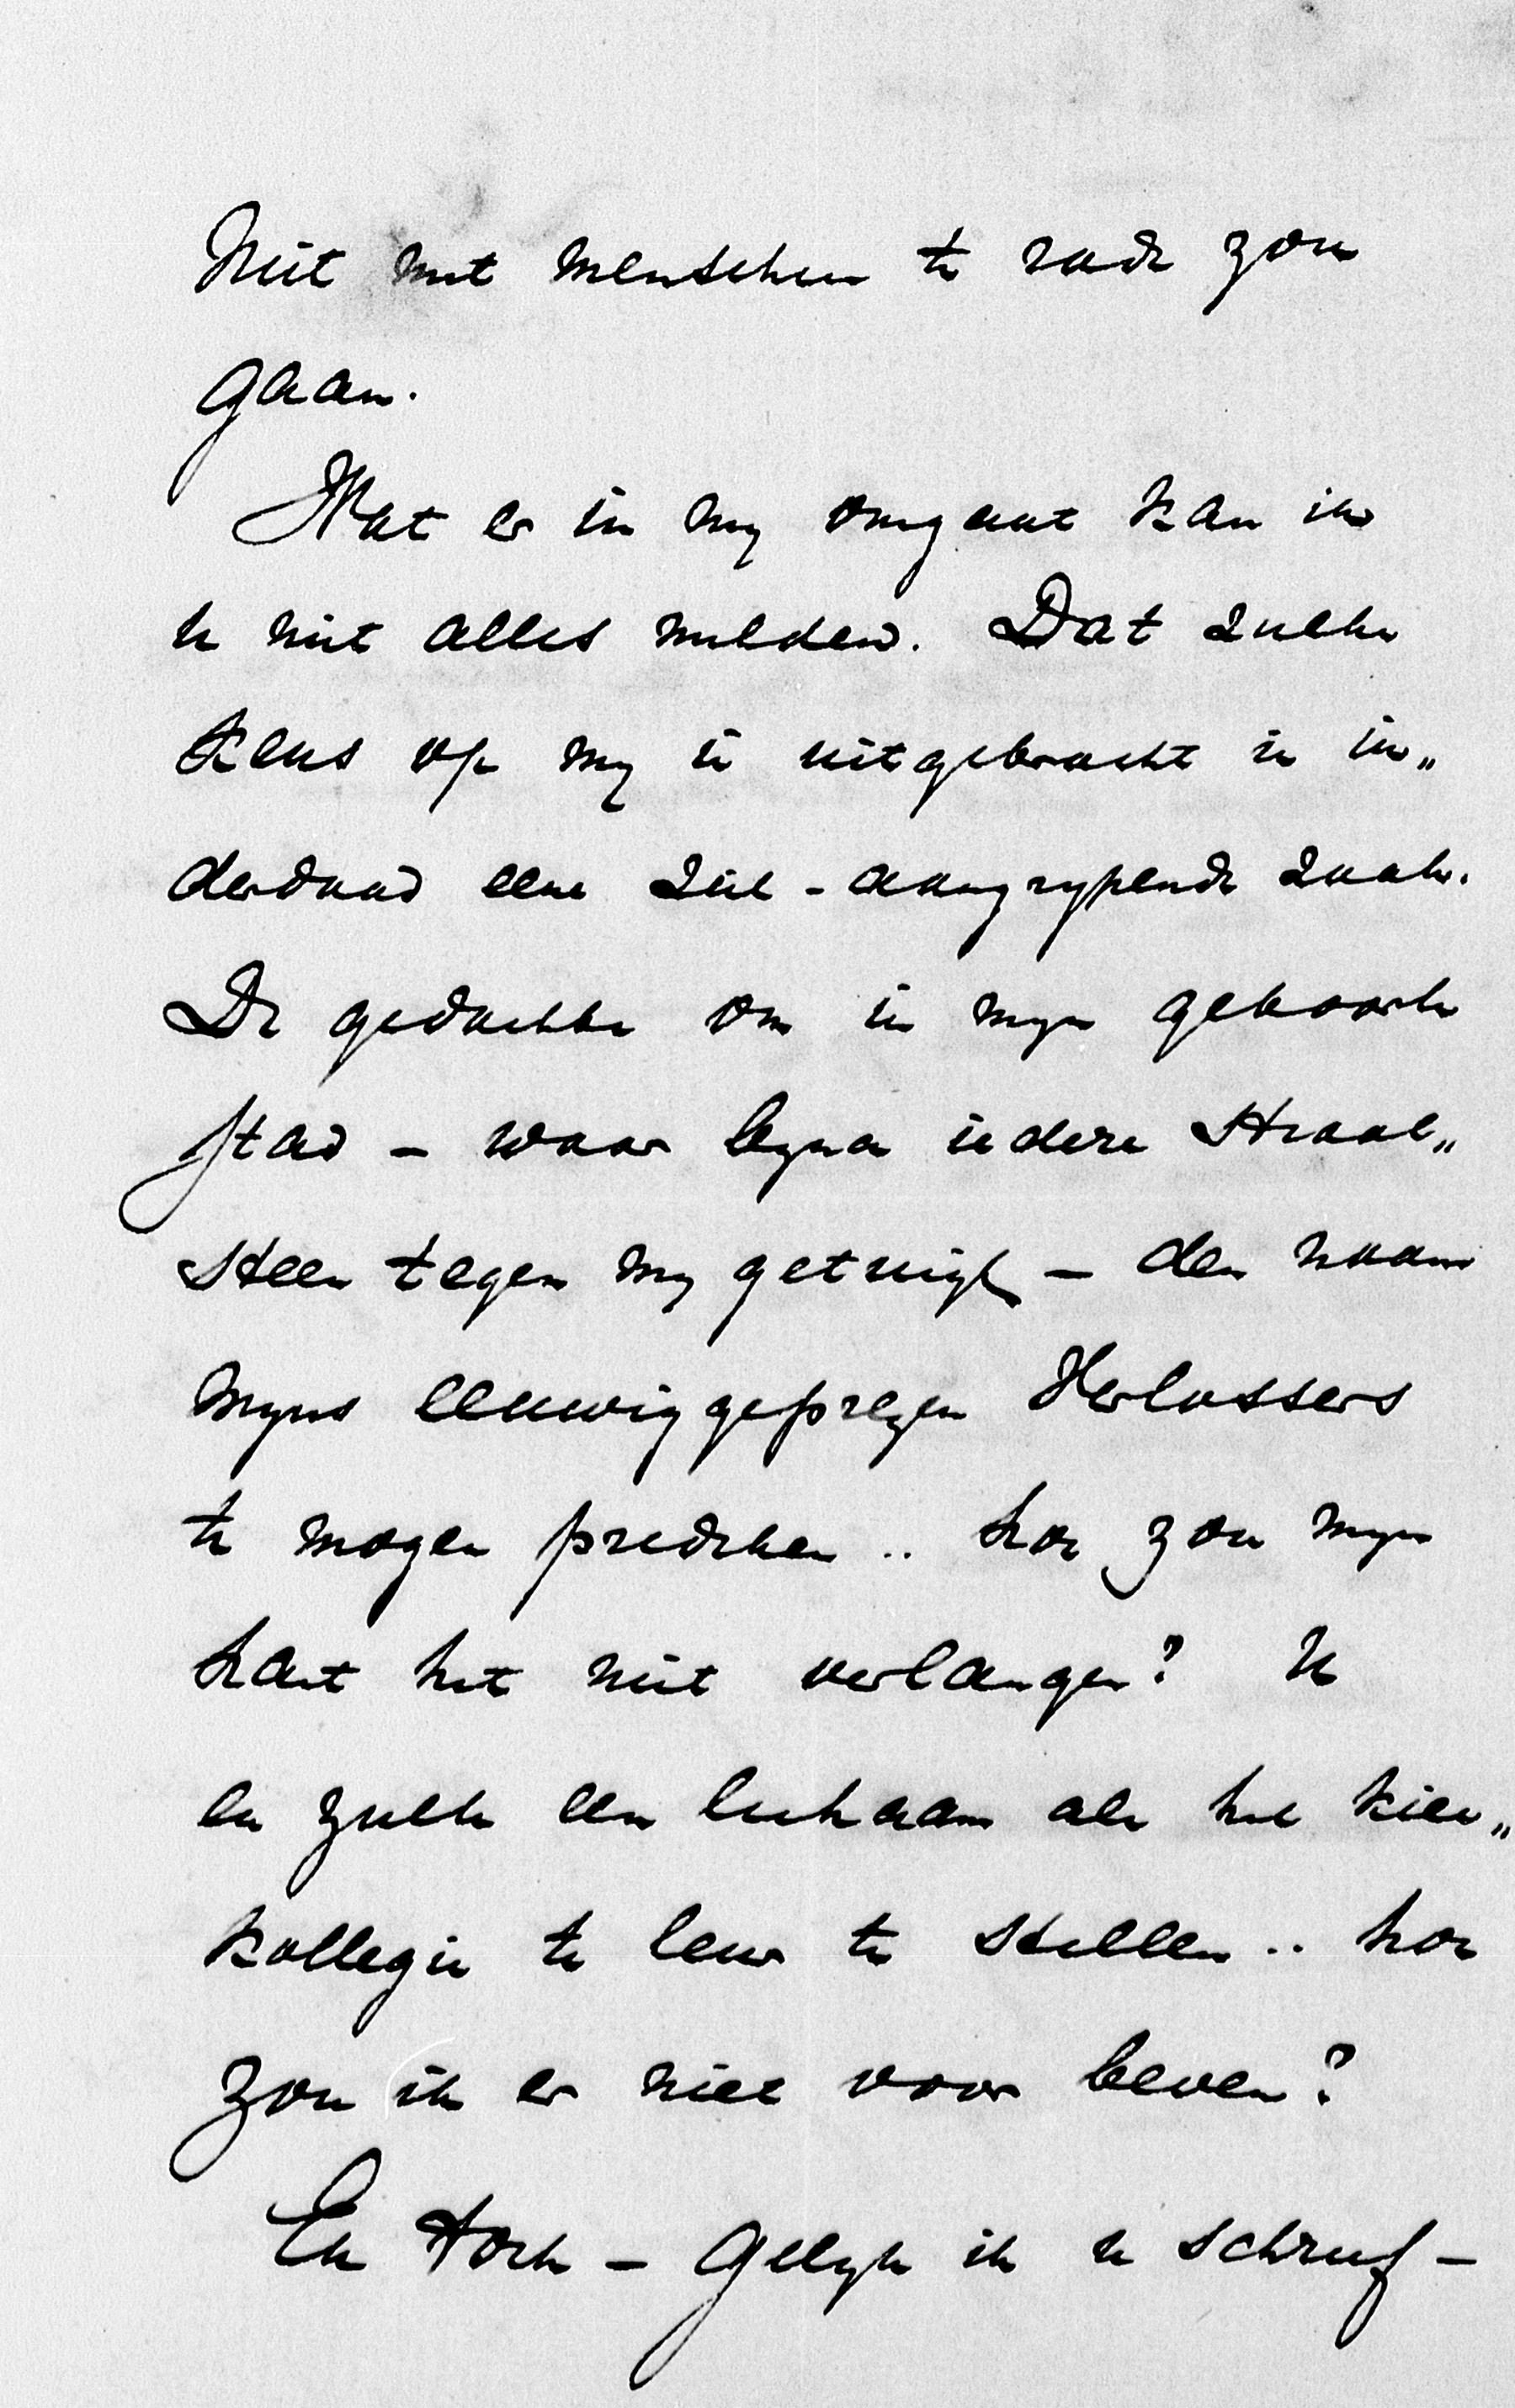 Niet met menschen te rade zou
gaan.
Wat er in my omgaat kan ik
u niet alles melden. Dat zulke
keus op my is uitgebracht is in„
derdaad eene ziel-aangrypende zaak.
De gedachte om in myn geboorte
stad – waar byna iedere straat„
steen tegen my getuigt – den naam
myns eeuwiggeprezen Verlossers
te mogen prediken .. hoe zou myn
hart het niet verlangen? U
en zulk een lichaam als het kies„
kollegie te leur te stellen .. hoe
zou ik er niet voor beven?
En toch – gelyk ik u schreef –